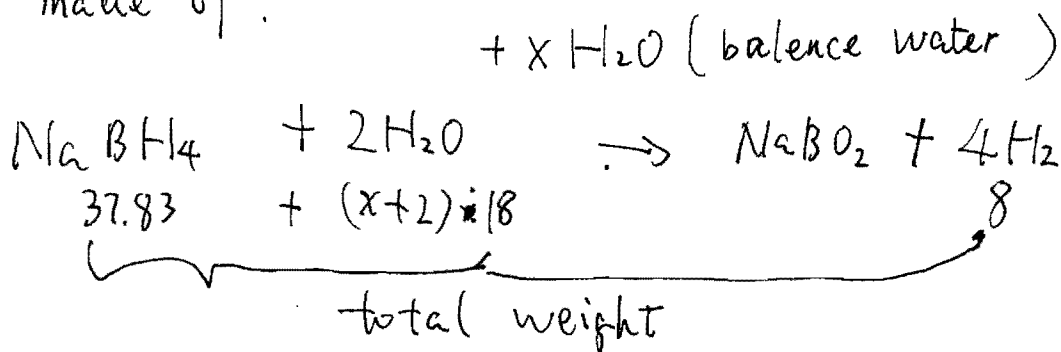 made of.
+ x H₂O ( balence water )
NaBH₄ + 2H₂O → NaBO₂ + 4H₂
37.83 + (x+2)·18 8
total weight